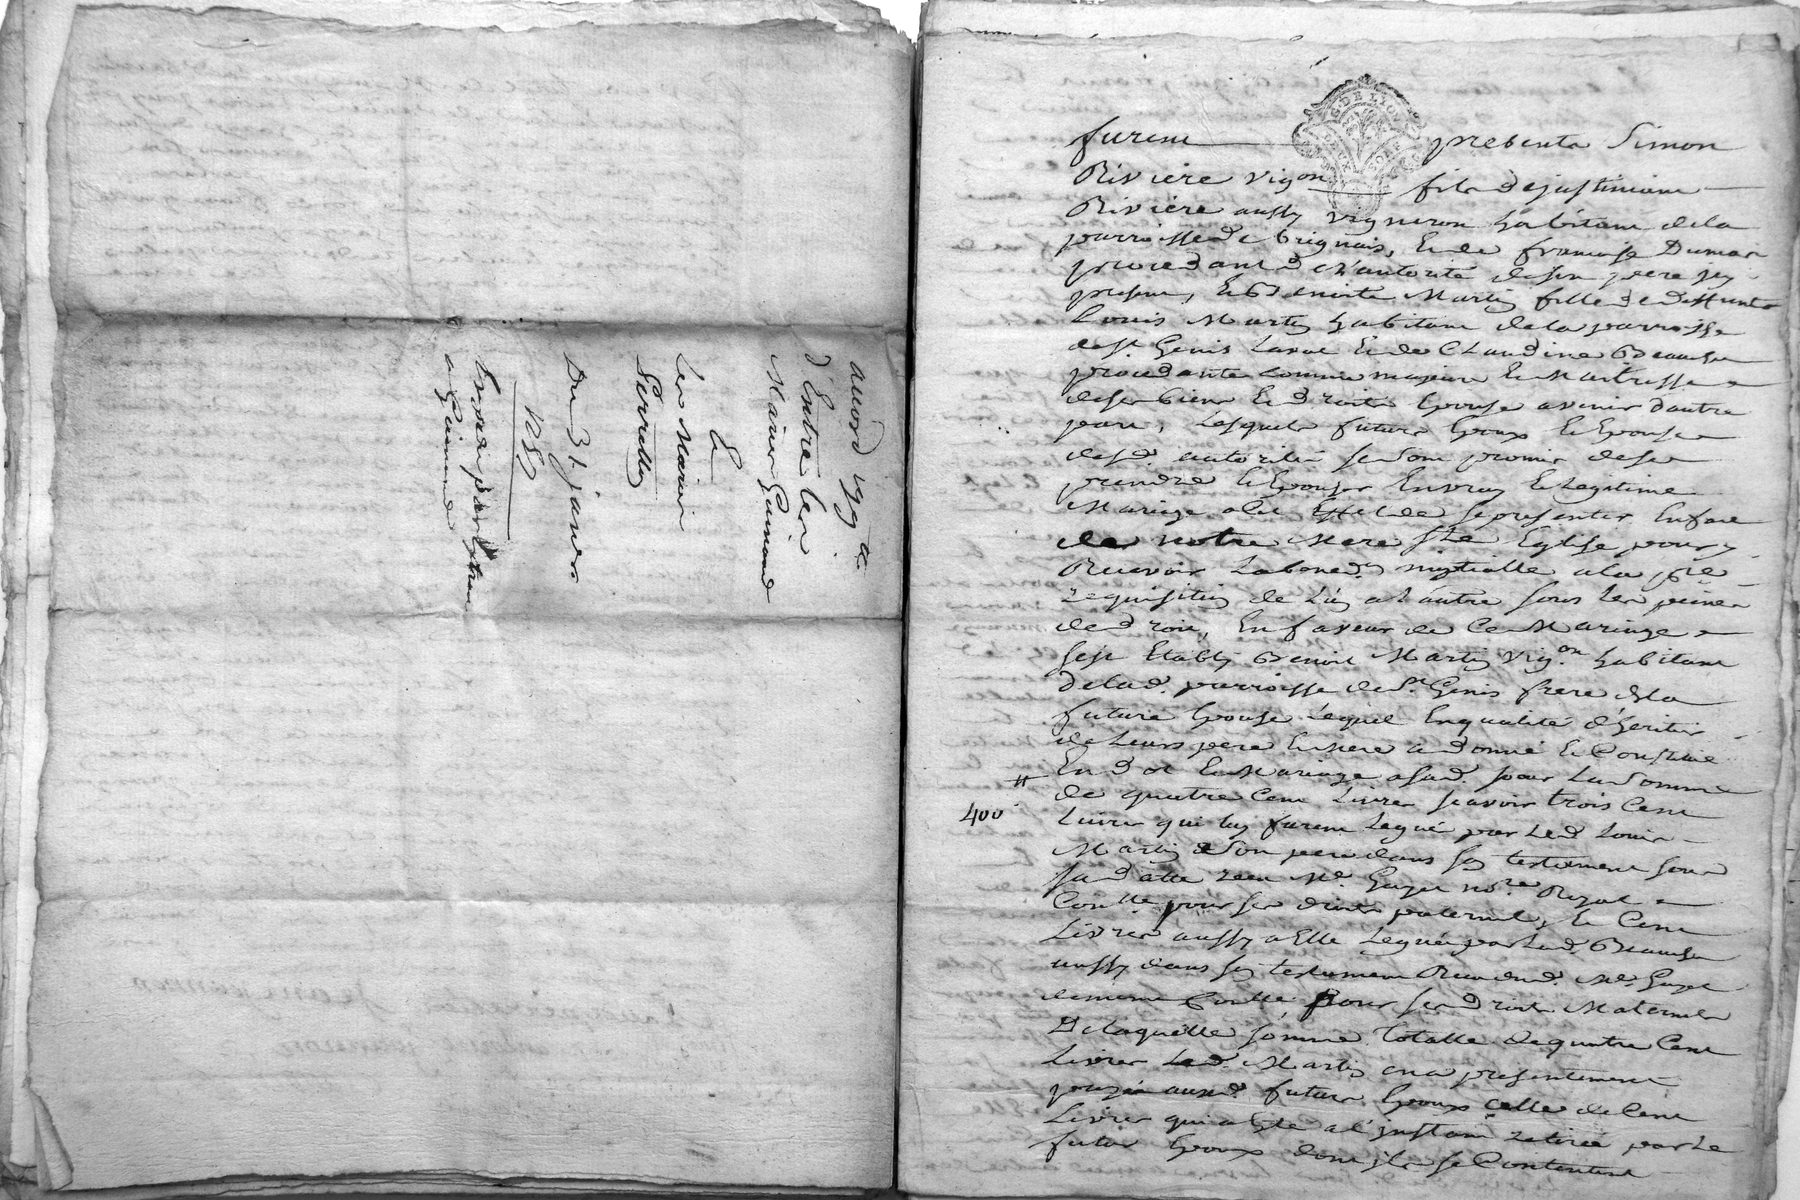 accord 1gg.te
d'Entre les
Mariés Guimand
&
les Mariés
Serrulles
Du 31 janvier
Furent presents Simon
Riviere vigon fils de justiniene
Riviere aussy vigneron habitant de la
parroisse de brignais, Et de francoise Dumas
procedant de l'autorité de son pere icy
present, Et Benoite Martin fille de deffunts
Louis Martin habitant de la parroisse
de St. Genis Laval Et de Claudine
procedante comme majeure Et Maitresse
de ses biens Et droits Epouse avenir d'autre
part, Lesquels futurs Epoux Et Epouse
desd. autorités se sont promis de se
prendre Et Epouser En vray Et Legitime
Mariage a Cet Effet de se presenter En face
de notre Mere Ste Eglise pour y
Recevoir La bened.on nuptialle a la pre
Requisition de L'un a l'autre sous les peines
de droit, En faveur de Ce Mariage
sest Etably Benoit Martin vig.on habitant
de lad. parroisse de St. Genis frere de la
future Epouse Lequel En qualité d'heritier
de Leurs pere Et mere a donné Et Constitué
En dot Et Mariage a sad. soeur La somme
400# de quatre Cent Livres scavoir trois Cent
Livres qui luy furent Legué par Led. Louis
Martin son pere dans son testement sous
sa datte Receu Me. Guyot no.re Royal
pour ses droits paternels, Et Cent
Livres aussy a Elle Legués par Lad.
aussy dans son testement Receu dud. Me. Guyot
de meme pour ses droits Maternels
De laquelle somme totalle de quatre Cent
Livres Led. Martin en a presentement
payé auxd. futurs Epoux celle de Cent
Livres qui a Eté a l'instant retirée par Le
futur Epoux dont ils se Contentent